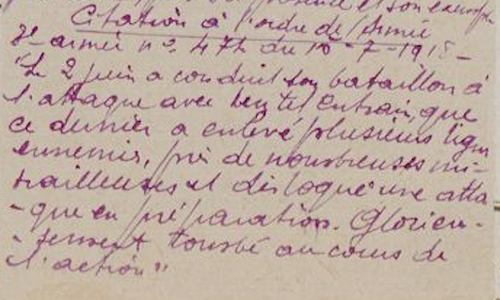 présence et son exemple
Citation à l'ordre de l'Armée
3e armée no 474 du 10-7-1918-
"Le 2 juin a conduit son bataillon à
l'attaque avec un tel entrain, que
ce dernier a enlevé plusieurs lignes
ennemies, pris de nombreuses mi-
trailleuses et disloqué une atta
-que en préparation. Glorieu-
-sement tombé au cours de
l'action"